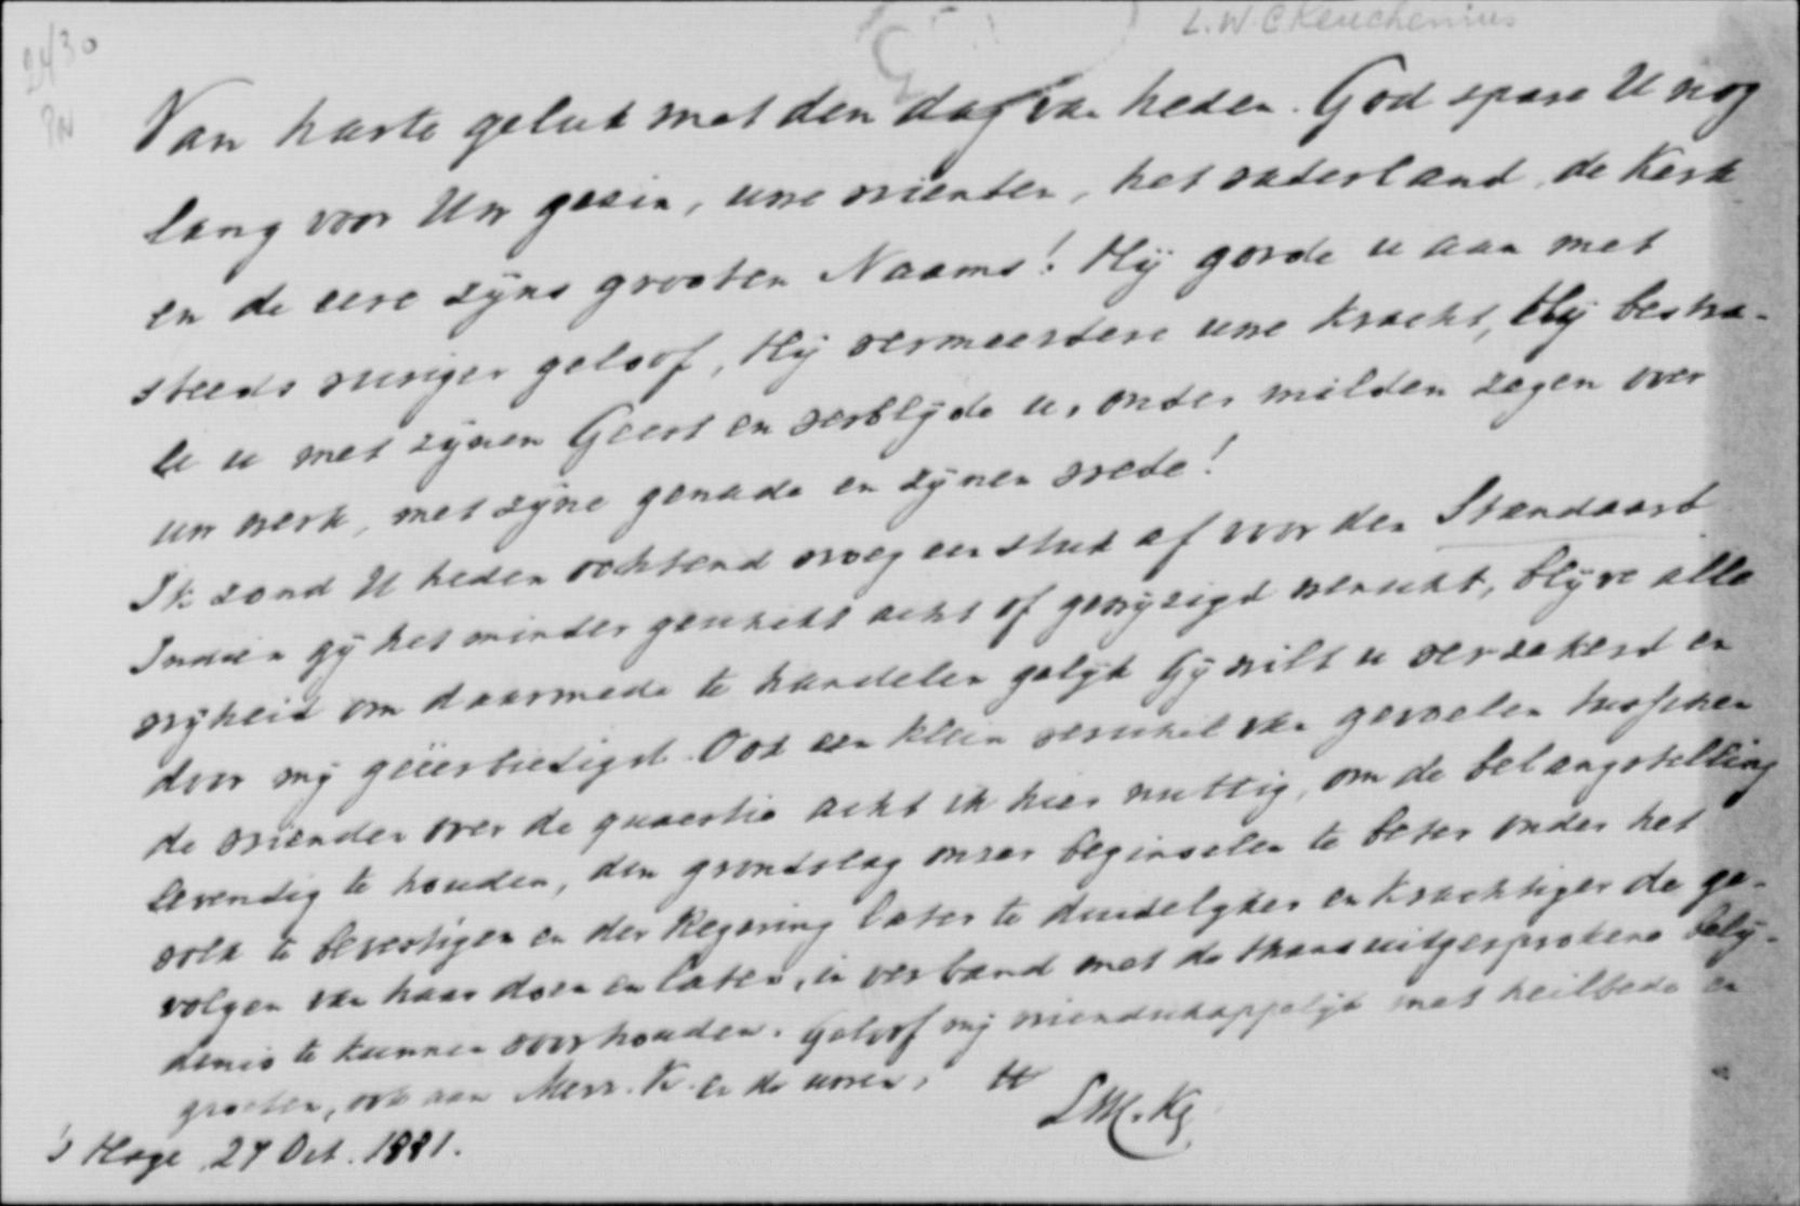 L.W.C Keuchenius
2430
PN
Van harte geluk met den dag van heden. God spare U nog
lang voor Uw gezin, uwe vrienden, het vaderland, de Kerk
en de eere zijns grooten Naams! Hij gorde u aan met
steeds vuriger geloof, Hij vermeerdere uwe kracht, Hij bestra-
le u met zijnen Geest en verblijde u, onder milden zegen over
uw werk, met zijne genade en zijnen vrede!
Ik zond U heden ochtend vroeg een stuk af voor den Standaard
Indien gij het minder geschikt acht of gewijzigd wenscht, blijve alle
vrijheid om daarmede te handelen gelijk Gij wilt u verzekerd en
door mij geëerbiedigd. Ook een klein verschil van gevoelen tusschen
de vrienden over de quaestie acht ik hier nuttig, om de belangstelling
levendig te houden, den grondslag onzer beginselen te beter onder het
volk te bevestigen en der Regering later te duidelijker en krachtiger de ge-
volgen van haar doen en laten, in verband met de thans uitgesprokene belij-
denis te kunnen voorhouden. Geloof mij vriendschappelijk met heilbede en
groeten, ook aan Mevr. K. en de uwen,
's Hage, 29 Oct. 1881.